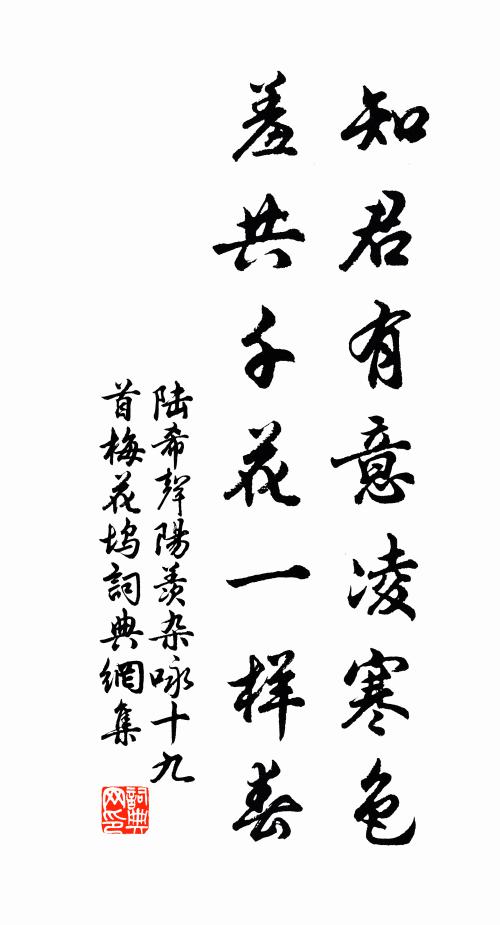 知君有意凌寒色
羞共千花一样春
陆希聲陽羡杂咏十九
首梅花坞詞典網集
詞典
网印